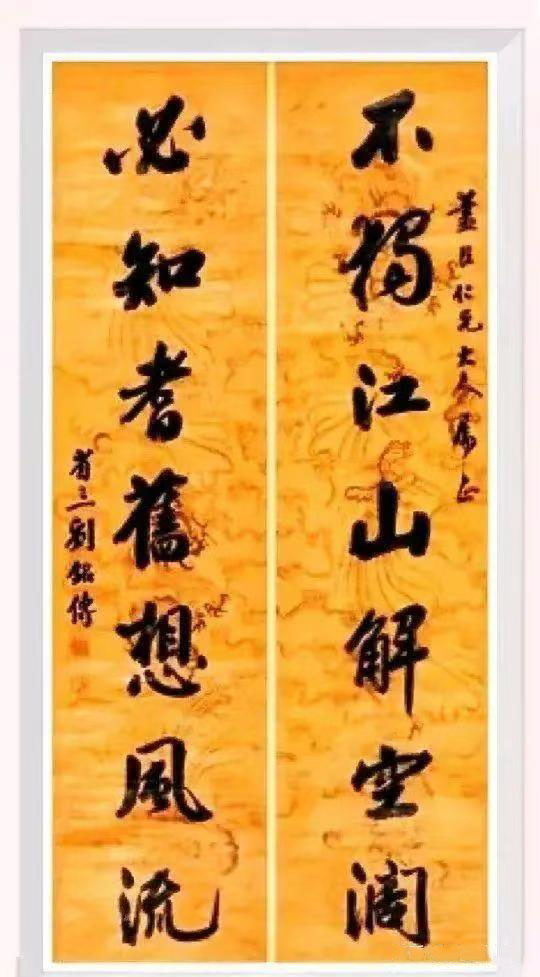 不獨江山解空濶
藎臣仁兄大人屬正
必知耆舊想風流
省三劉銘傳